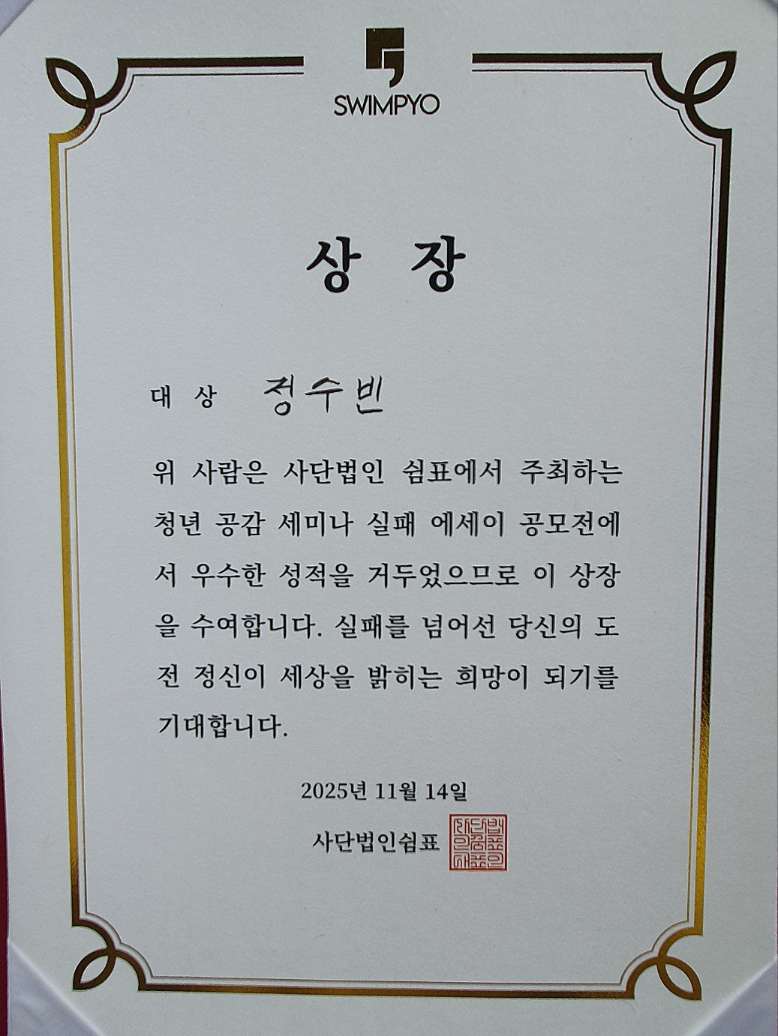 SWIMPYO
상 장
대 상 정수빈
위 사람은 사단법인 쉼표에서 주최하는
청년 공감 세미나 실패 에세이 공모전에
서 우수한 성적을 거두었으므로 이 상장
을 수여합니다. 실패를 넘어선 당신의 도
전 정신이 세상을 밝히는 희망이 되기를
기대합니다.
2025년 11월 14일
사단법인쉼표